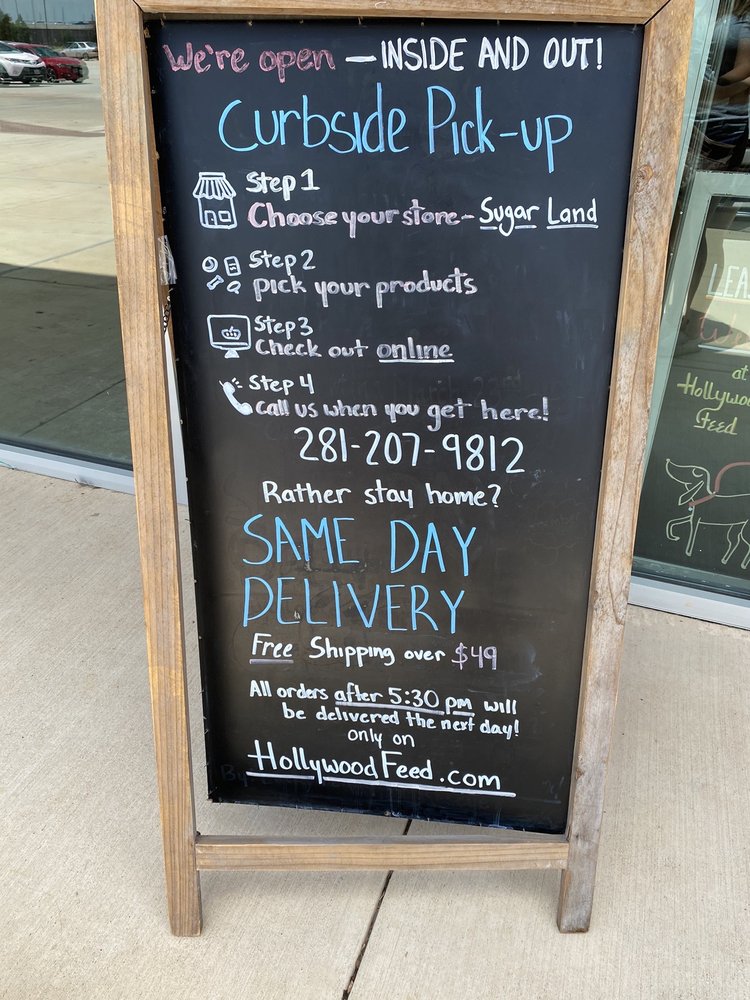 We're open — INSIDE AND OUT!
Curbside Pick-up
Step 1
Choose your store - Sugar Land
Step 2
pick your products
Step 3
Check out online
Step 4
Call us when you get here!
281-207-9812
Rather stay home?
SAME DAY
DELIVERY
Free Shipping over $49
All orders after 5:30 pm will
be delivered the next day!
only on
HollywoodFeed.com
LEA
at
Hollywo
Feed